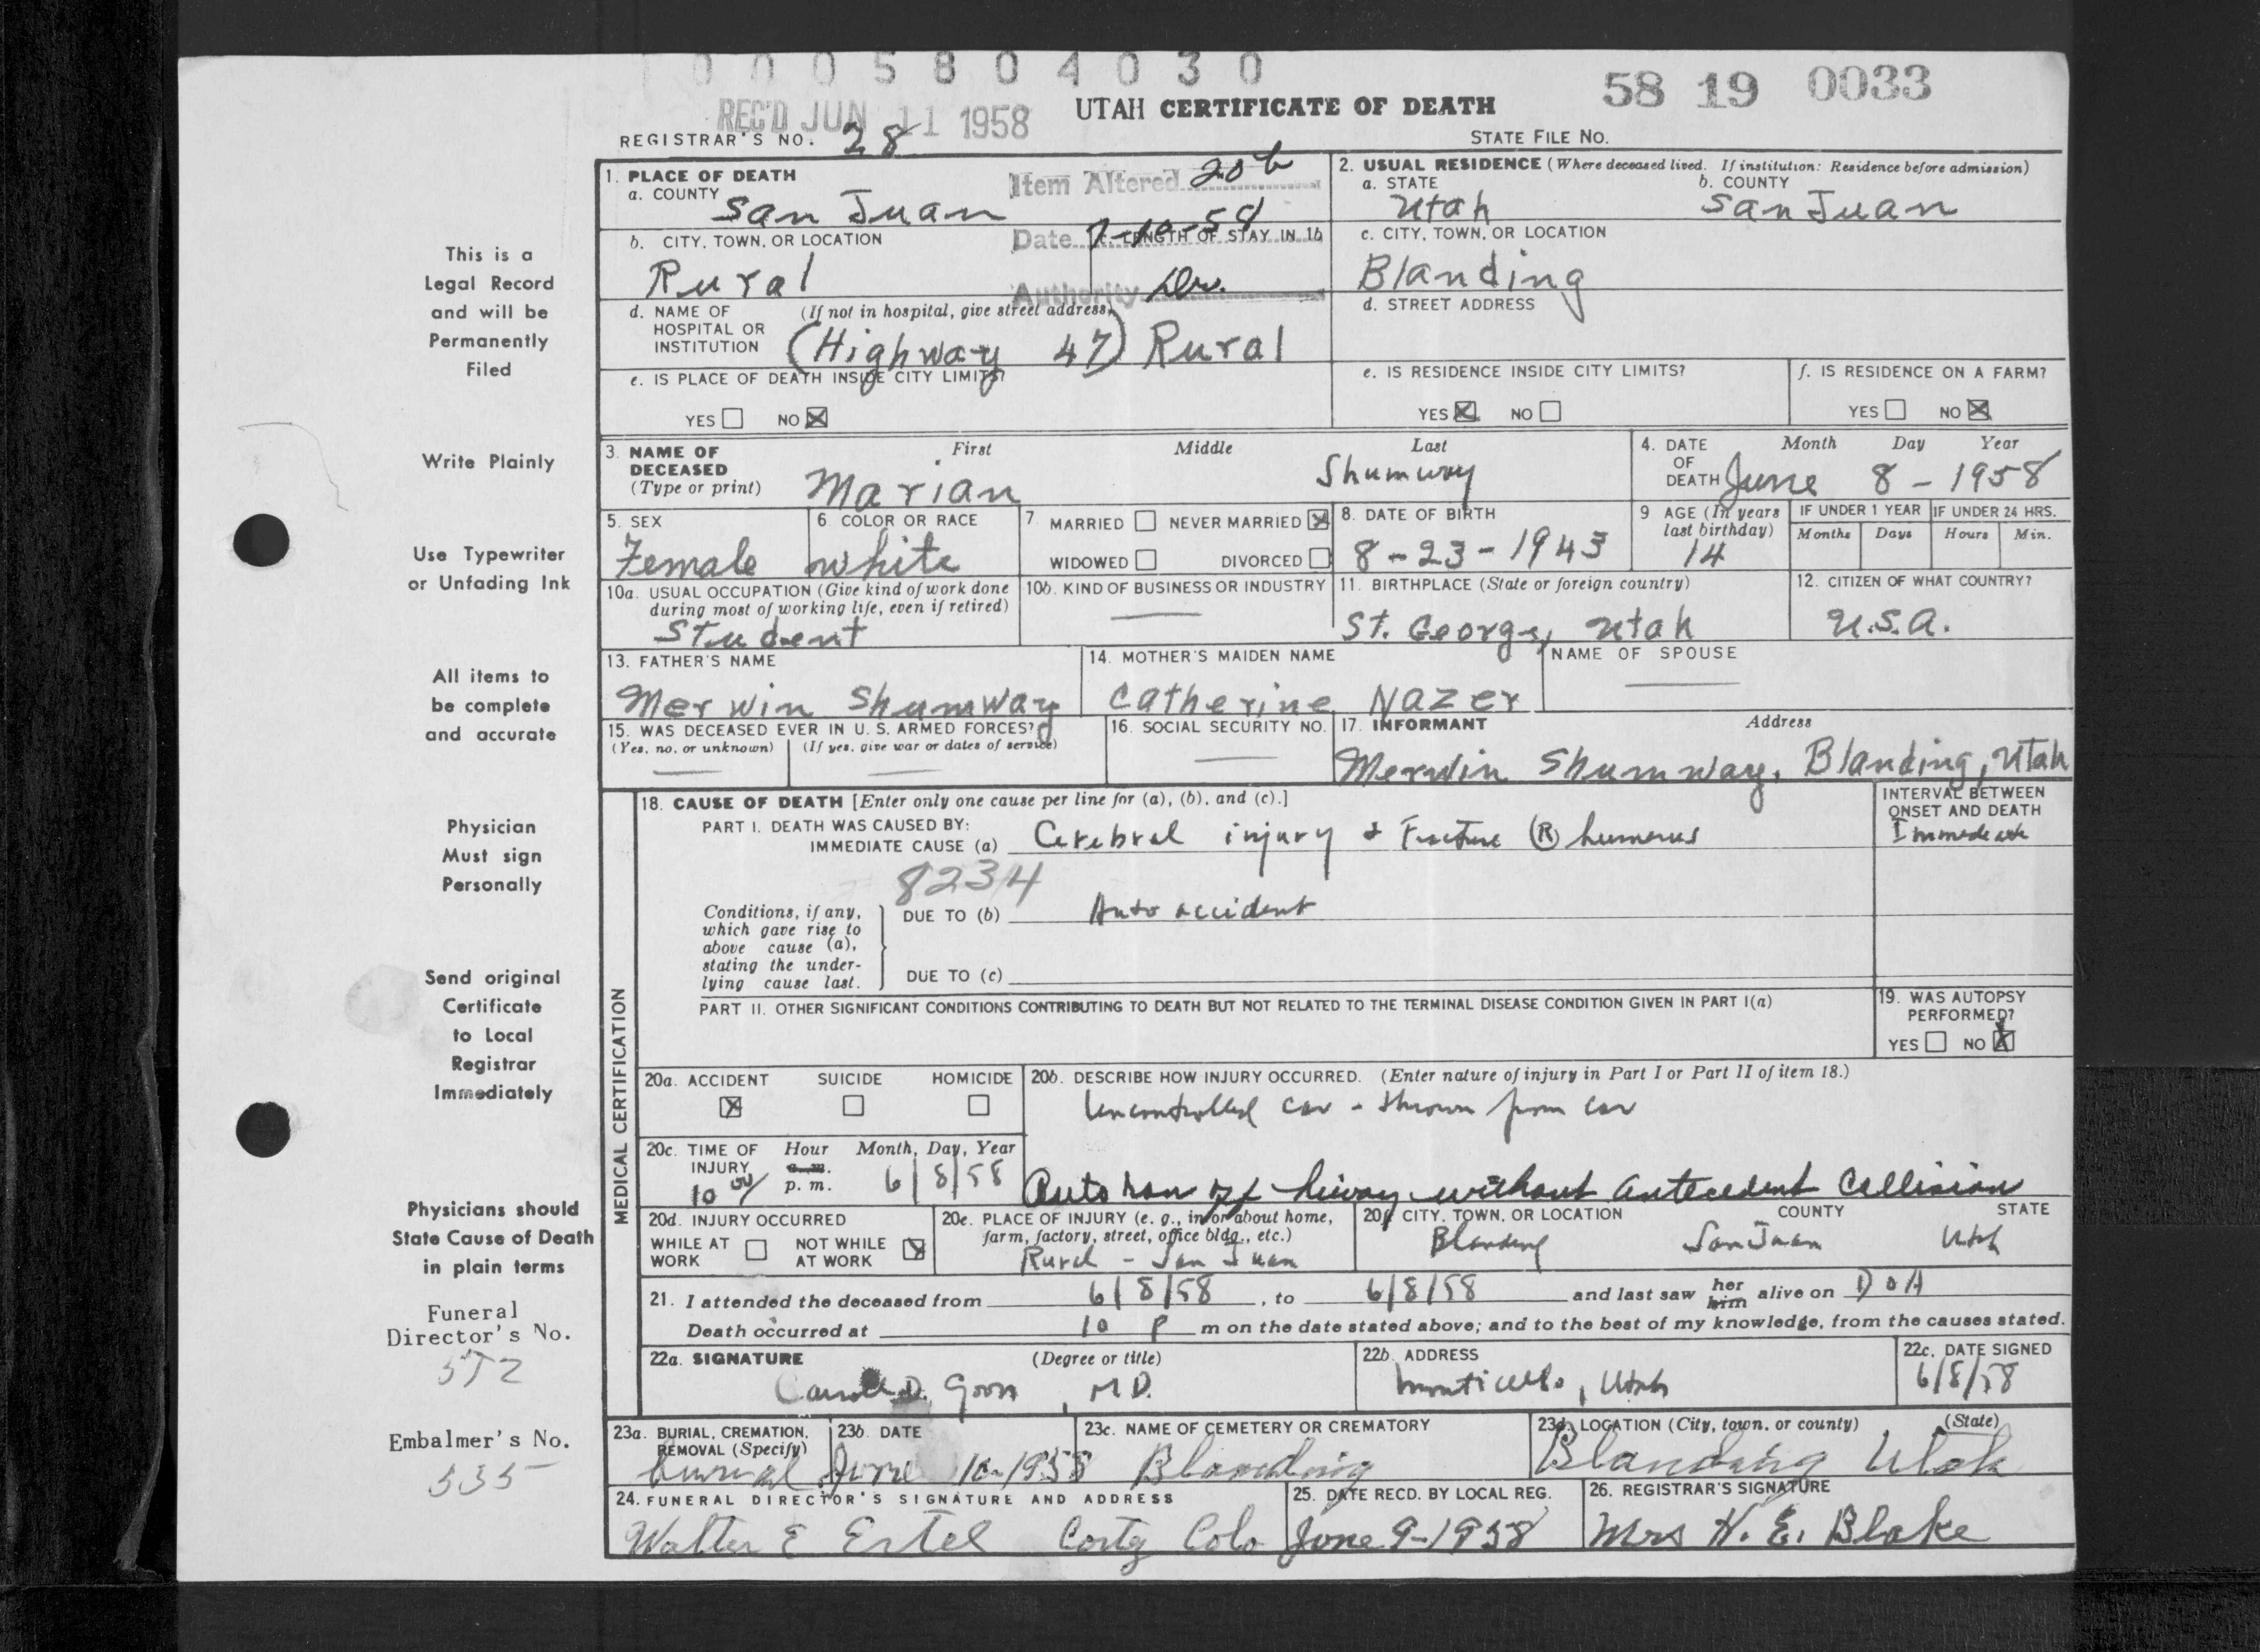 0 0 0 5 8 0 4 0 3 0
58 19 0033
REC'D JUN 11 1958
UTAH CERTIFICATE OF DEATH
REGISTRAR'S NO. 28
STATE FILE NO.
1. PLACE OF DEATH
a. COUNTY
San Juan
Item Altered 20b
Date 7-10-58
Authority Dr.
b. CITY, TOWN, OR LOCATION
Rural
c. LENGTH OF STAY IN 1b
d. NAME OF HOSPITAL OR INSTITUTION
(If not in hospital, give street address)
(Highway 47) Rural
e. IS PLACE OF DEATH INSIDE CITY LIMITS?
YES NO X
2. USUAL RESIDENCE (Where deceased lived. If institution: Residence before admission)
a. STATE
Utah
b. COUNTY
San Juan
c. CITY, TOWN, OR LOCATION
Blanding
d. STREET ADDRESS
e. IS RESIDENCE INSIDE CITY LIMITS?
YES X NO
f. IS RESIDENCE ON A FARM?
YES NO X
3. NAME OF DECEASED
(Type or print)
First Middle Last
Marian Shumway
4. DATE OF DEATH
Month Day Year
June 8 - 1958
5. SEX
Female
6. COLOR OR RACE
White
7. MARRIED NEVER MARRIED X
WIDOWED DIVORCED
8. DATE OF BIRTH
8-23-1943
9 AGE (In years last birthday)
14
IF UNDER 1 YEAR
Months Days
IF UNDER 24 HRS.
Hours Min.
10a. USUAL OCCUPATION (Give kind of work done during most of working life, even if retired)
Student
10b. KIND OF BUSINESS OR INDUSTRY
11. BIRTHPLACE (State or foreign country)
St. George, Utah
12. CITIZEN OF WHAT COUNTRY?
U.S.A.
13. FATHER'S NAME
Merwin Shumway
14. MOTHER'S MAIDEN NAME
Catherine Nazer
NAME OF SPOUSE
15. WAS DECEASED EVER IN U.S. ARMED FORCES?
(Yes, no, or unknown) (If yes, give war or dates of service)
16. SOCIAL SECURITY NO.
17. INFORMANT Address
Merwin Shumway, Blanding, Utah
MEDICAL CERTIFICATION
18. CAUSE OF DEATH [Enter only one cause per line for (a), (b), and (c).]
PART I. DEATH WAS CAUSED BY:
IMMEDIATE CAUSE (a) Cerebral injury & Fracture (R) humerus
INTERVAL BETWEEN ONSET AND DEATH
Immediate
8234
Conditions, if any, which gave rise to above cause (a), stating the underlying cause last.
DUE TO (b) Auto accident
DUE TO (c)
PART II. OTHER SIGNIFICANT CONDITIONS CONTRIBUTING TO DEATH BUT NOT RELATED TO THE TERMINAL DISEASE CONDITION GIVEN IN PART I(a)
19. WAS AUTOPSY PERFORMED?
YES NO X
20a. ACCIDENT SUICIDE HOMICIDE
X
20b. DESCRIBE HOW INJURY OCCURRED. (Enter nature of injury in Part I or Part II of item 18.)
Uncontrolled car - thrown from car
Auto ran off hiway without antecedent Collision
20c. TIME OF INJURY
Hour Month, Day, Year
a. m.
p. m.
10 00 6/8/58
20d. INJURY OCCURRED
WHILE AT WORK NOT WHILE AT WORK X
20e. PLACE OF INJURY (e. g., in or about home, farm, factory, street, office bldg., etc.)
Rural - San Juan
20f. CITY, TOWN, OR LOCATION COUNTY STATE
Blanding San Juan Utah
21. I attended the deceased from 6/8/58, to 6/8/58 and last saw her him alive on DOA
Death occurred at 10 P m on the date stated above; and to the best of my knowledge, from the causes stated.
22a. SIGNATURE (Degree or title)
Carroll D. Goon, MD.
22b. ADDRESS
Monticello, Utah
22c. DATE SIGNED
6/8/58
23a. BURIAL, CREMATION, REMOVAL (Specify)
burial
23b. DATE
June 10-1958
23c. NAME OF CEMETERY OR CREMATORY
Blanding
23d. LOCATION (City, town, or county) (State)
Blanding Utah
24. FUNERAL DIRECTOR'S SIGNATURE AND ADDRESS
Walter E Ertel Cortz Colo
25. DATE RECD. BY LOCAL REG.
June 9-1958
26. REGISTRAR'S SIGNATURE
Mrs H. E. Blake
This is a
Legal Record
and will be
Permanently
Filed
Write Plainly
Use Typewriter
or Unfading Ink
All items to
be complete
and accurate
Physician
Must sign
Personally
Send original
Certificate
to Local
Registrar
Immediately
Physicians should
State Cause of Death
in plain terms
Funeral
Director's No.
572
Embalmer's No.
535